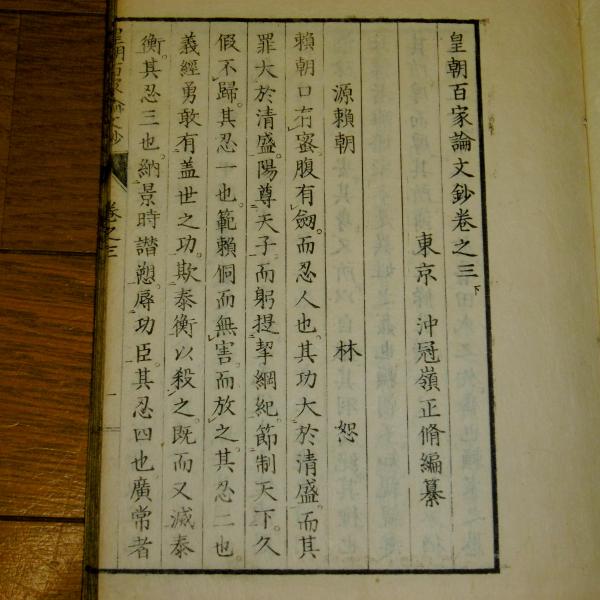 皇朝百家論文鈔卷之三下
東京 沖冠嶺正脩編纂
源賴朝 林恕
賴朝口有蜜腹有劒。而忍人也。其功大於清盛。而其
罪大於清盛。陽尊天子。而躬提挈綱紀。節制天下。久
假不歸。其忍一也。範賴侗而無害。而放之。其忍二也。
義經勇敢有蓋世之功。欺泰衡以殺之。既而又滅泰
衡。其忍三也。納景時譖愬。辱功臣。其忍四也廣常者
皇朝百家論文鈔 卷之三 一